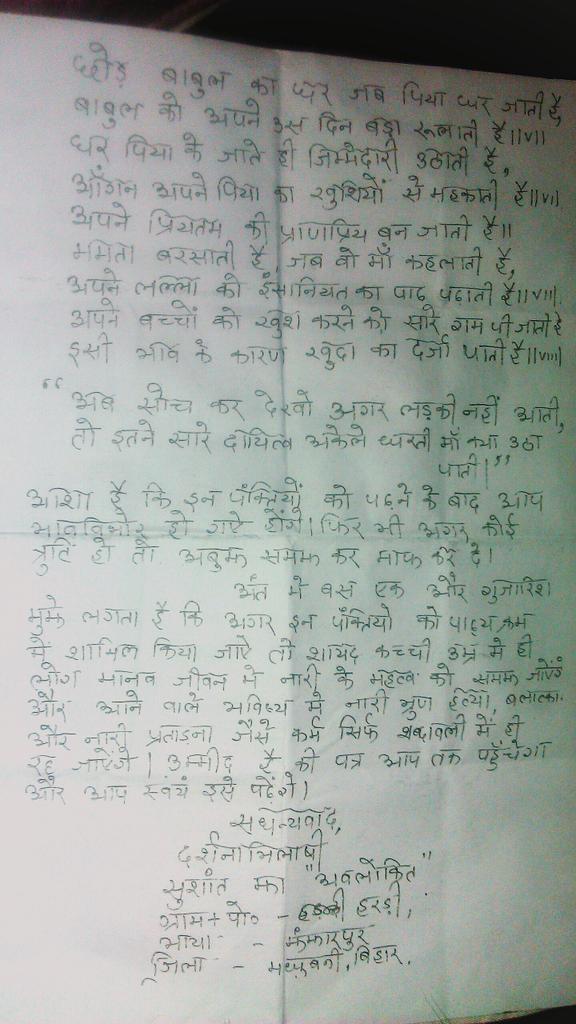 छोड़ बाबुल का घर जब पिया घर जाती है,
बाबुल को अपने उस दिन बड़ा रूलाती है॥V॥
घर पिया के जाते ही जिम्मेदारी उठाती है,
आँगन अपने पिया का खुशियों से महकाती है॥VI॥
अपने प्रियतम की प्राणप्रिय बन जाती है॥
ममता बरसाती है, जब वो माँ कहलाती है,
अपने लल्लों को इंसानियत का पाठ पढ़ाती है॥VII॥
अपने बच्चों को खुश करने को सारे गम पी जाती है
इसी भाव के कारण खुदा का दर्जा पाती है॥VIII॥
"अब सोच कर देखो अगर लड़की नहीं आती,
तो इतने सारे दायित्व अकेले धरती माँ क्या उठा
पाती।"
आशा है कि इन पंक्तियों को पढ़ने के बाद आप
भावविभोर हो गए होंगे। फिर भी अगर कोई
त्रुटि हो तो अबुझ समझ कर माफ कर दें।
अंत में बस एक और गुजारिश
मुझे लगता है कि अगर इन पंक्तियों को पाठ्यक्रम
में शामिल किया जाए तो शायद कच्ची उम्र में ही
लोग मानव जीवन में नारी के महत्व को समझ जाएंगे
और आने वाले भविष्य में नारी भ्रूण हत्या, बलात्का
और नारी प्रताड़ना जैसे कर्म सिर्फ शब्दावली में ही
रह जाएंगे। उम्मीद है की पत्र आप तक पहुँचेगा
और आप स्वयं इसे पढ़ेंगे।
सधन्यवाद,
दर्शनाभिलाषी
सुशांत झा "अवलोकित"
ग्राम+पो० - हरड़ी,
भाया - झंझारपुर
जिला - मधुबनी, बिहार.